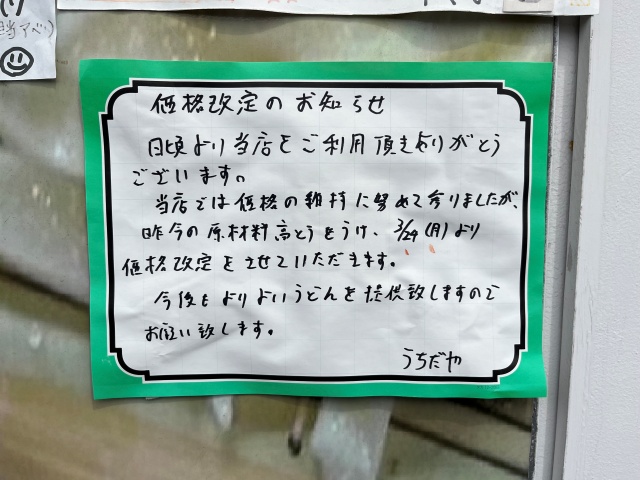 当アベリ)
価格改定のお知らせ
日頃より当店をご利用頂きありがとう
ございます。
当店では価格の維持に努めて参りましたが、
昨今の原材料高とうをうけ、3/29(月)より
価格改定をさせていただきます。
今後もよりよいうどんを提供致しますので
お願い致します。
うちだや